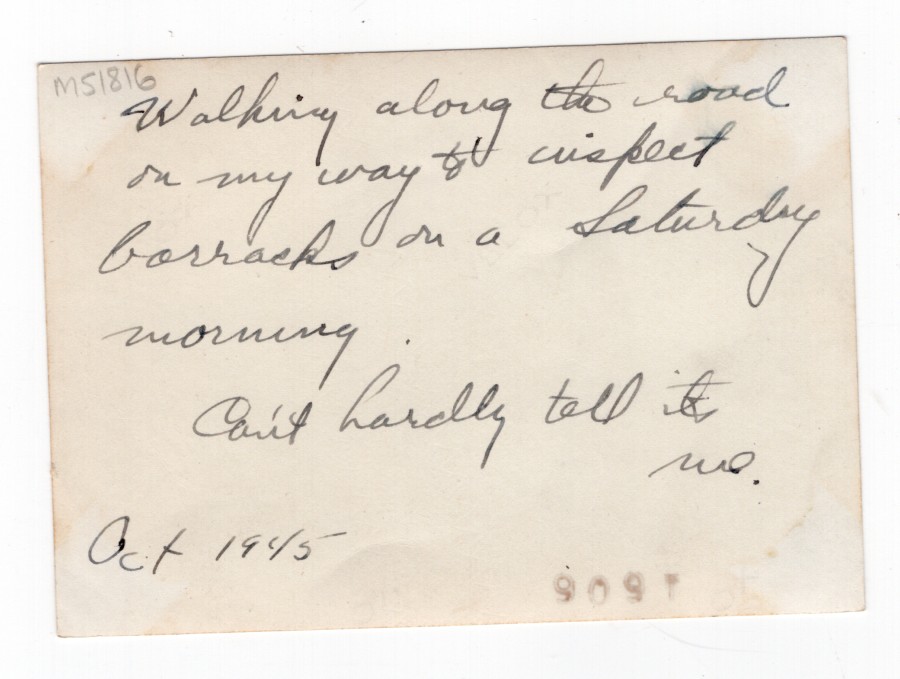 M51816
Walking along the road
on my way to inspect
barracks on a Saturday
morning.
Can't hardly tell its
me.
Oct 1945